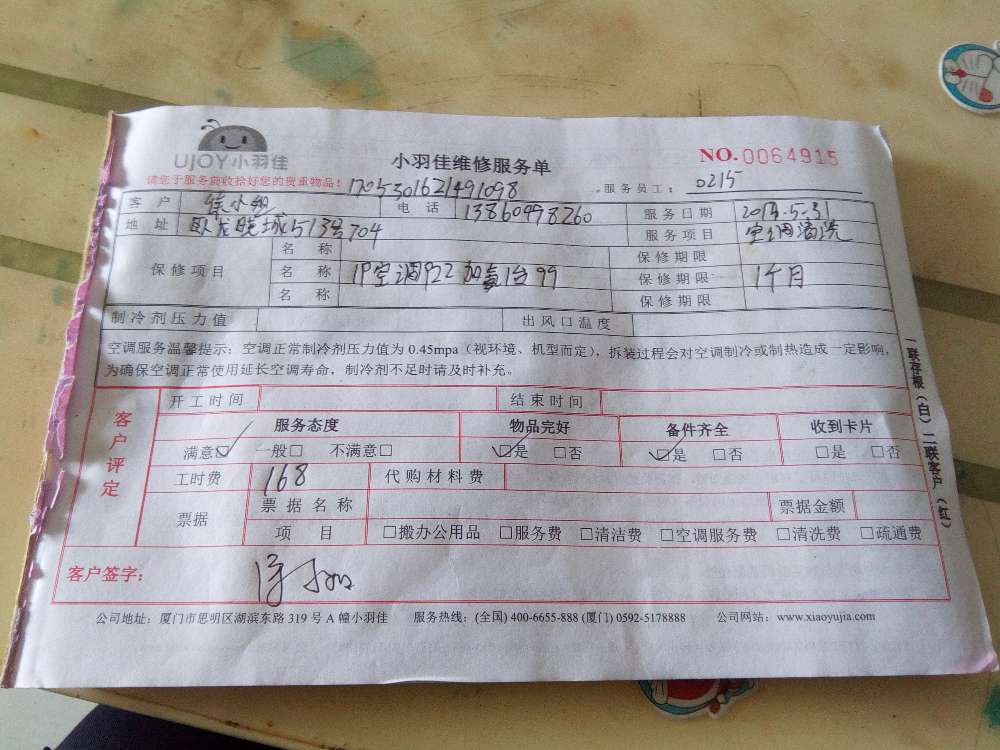 UJOY小羽佳
小羽佳维修服务单
NO.0064915
请您于服务前收拾好您的贵重物品!
1705301621491098
服务员工: 0215
客户 电话 13860998260 服务日期 2017.5.31
地址 卧龙晓城513号704 服务项目 空调清洗
保修项目 名称 保修期限
名称 1P空调R22加氟1台99 保修期限 1个月
名称 保修期限
制冷剂压力值 出风口温度
空调服务温馨提示:空调正常制冷剂压力值为0.45mpa(视环境、机型而定),拆装过程会对空调制冷或制热造成一定影响,
为确保空调正常使用延长空调寿命,制冷剂不足时请及时补充。
客户评定
开工时间 结束时间
服务态度 物品完好 备件齐全 收到卡片
满意☑ 一般□ 不满意□ ☑是 □否 ☑是 □否 □是 □否
工时费 168 代购材料费
票据 票据名称 票据金额
项目 □搬办公用品 □服务费 □清洁费 □空调服务费 □清洗费 □疏通费
客户签字:
公司地址:厦门市思明区湖滨东路319号A幢小羽佳 服务热线:(全国)400-6655-888(厦门)0592-5178888 公司网站:www.xiaoyujia.com
一联存根(白)二联客户(红)